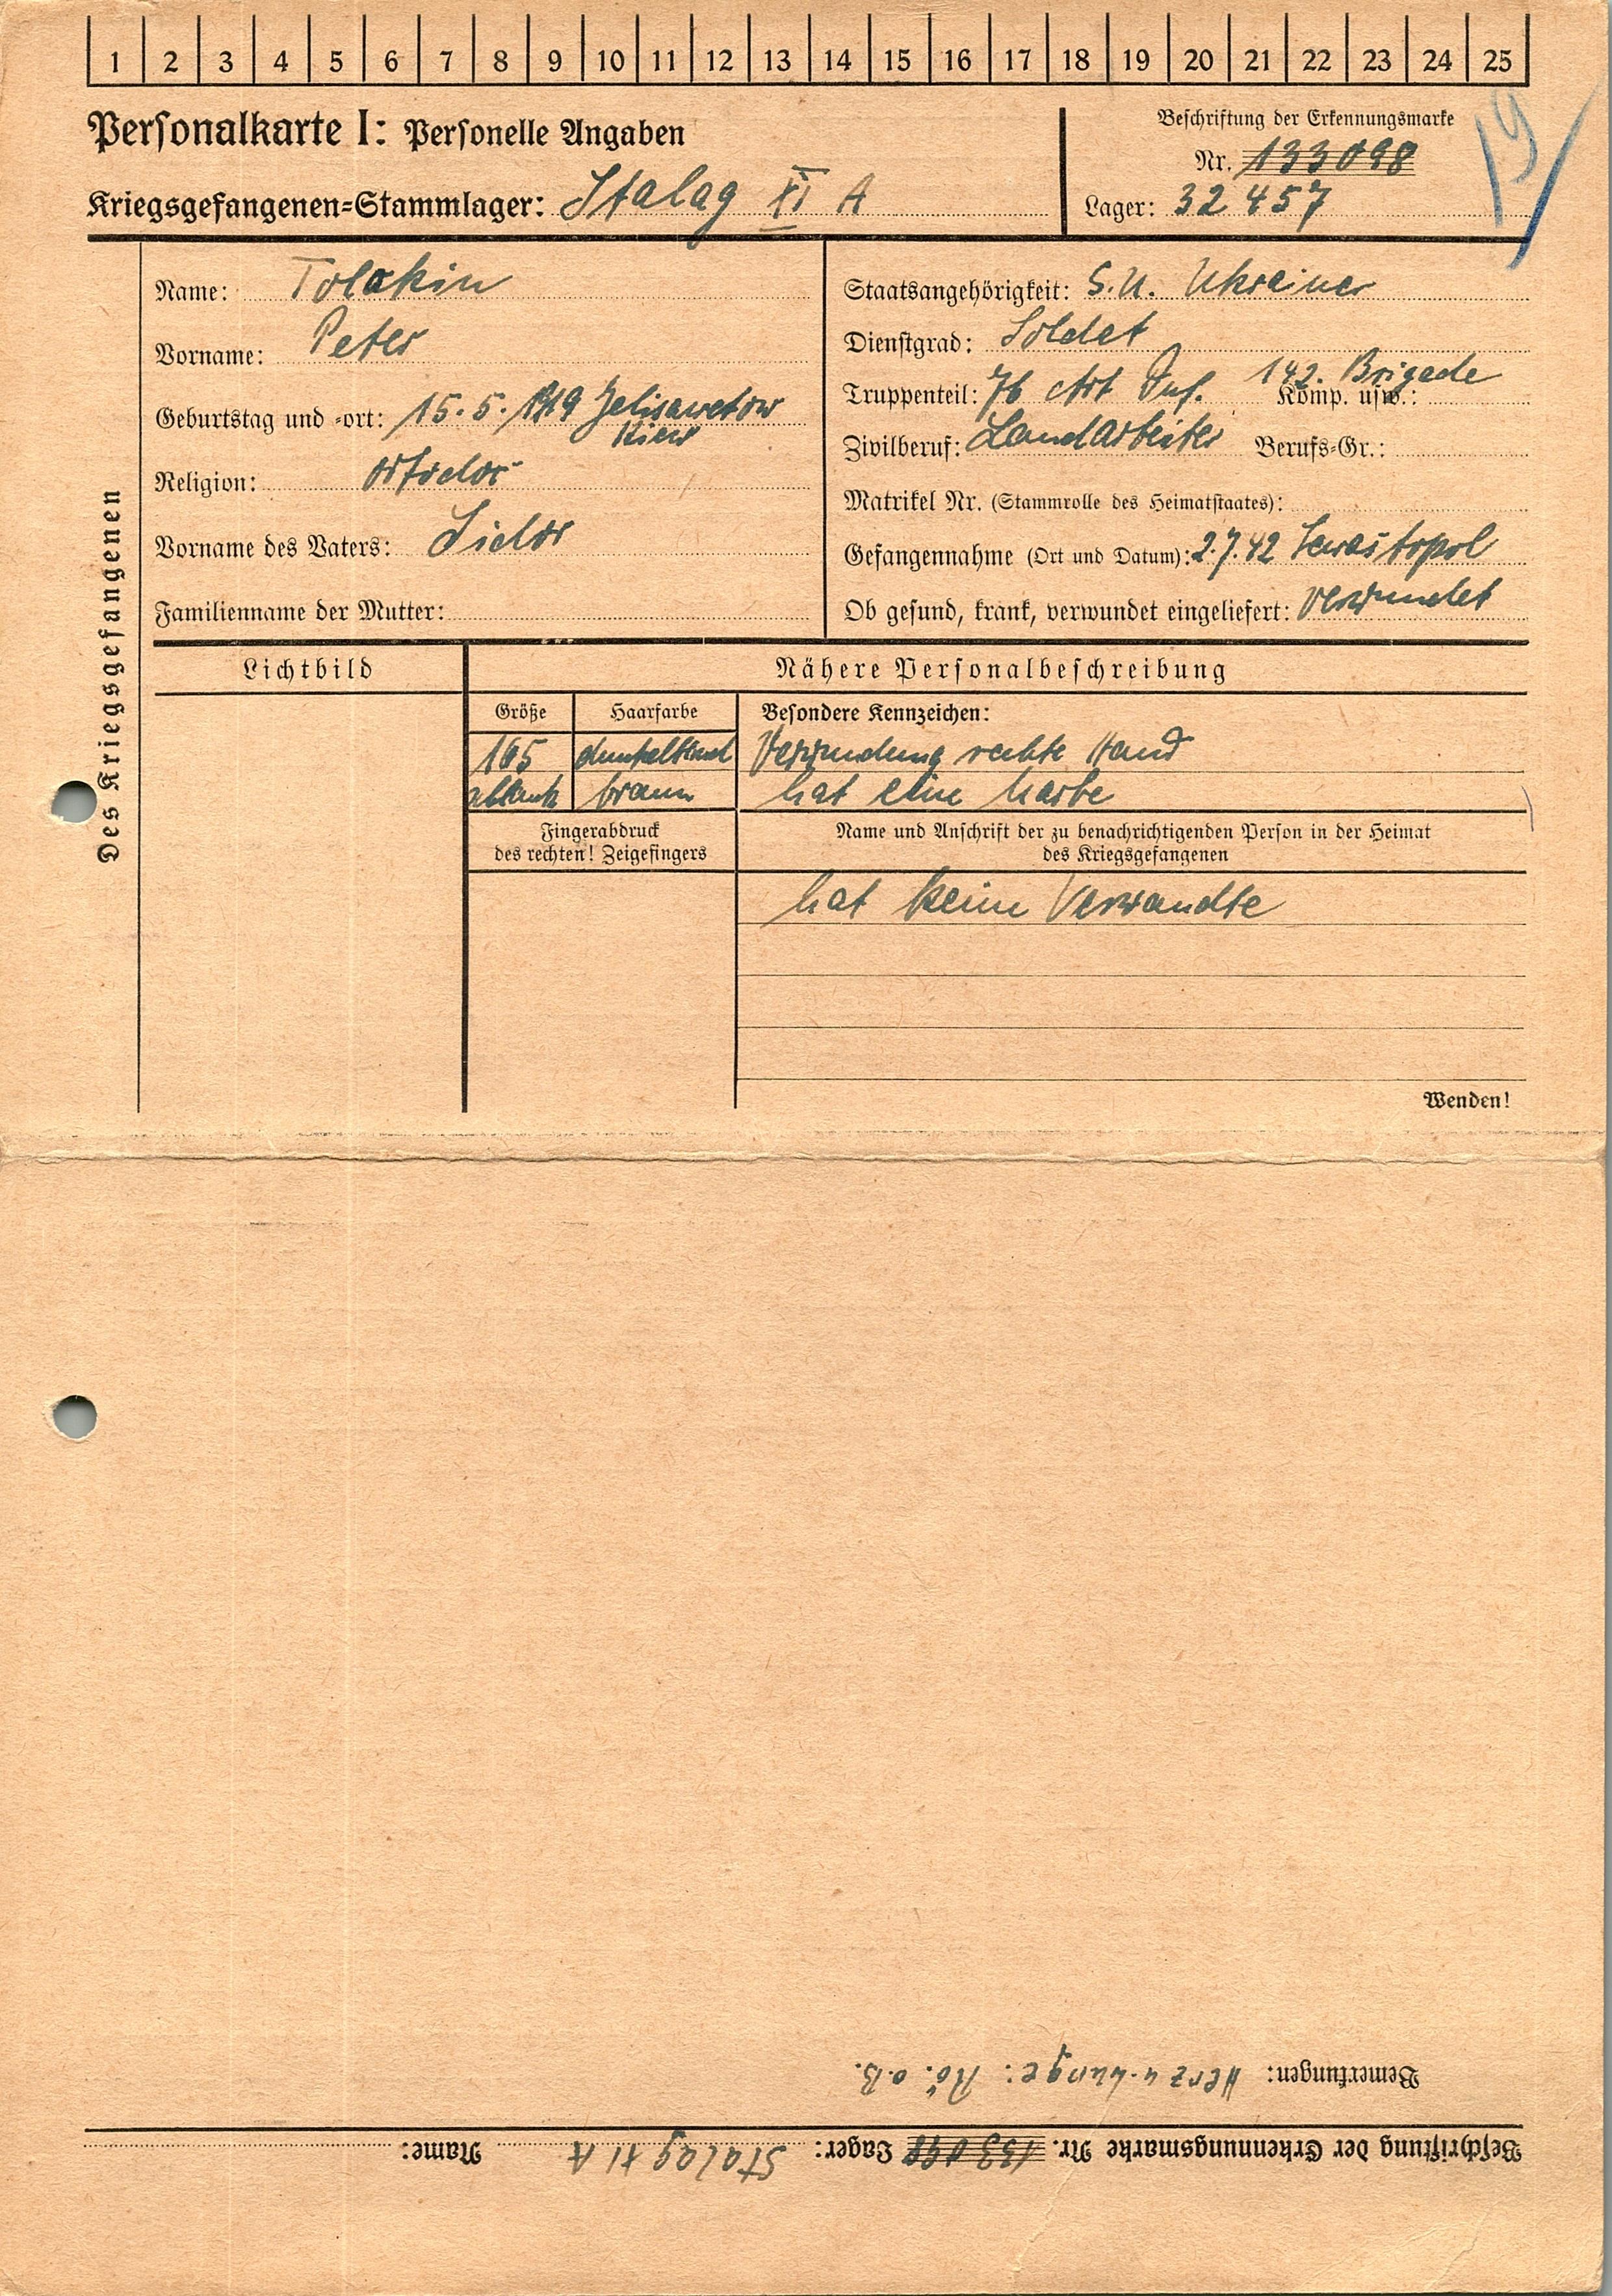 1 2 3 4 5 6 7 8 9 10 11 12 13 14 15 16 17 18 19 20 21 22 23 24 25
Personalkarte I: Personelle Angaben
Kriegsgefangenen-Stammlager: Stalag XI A
Beschriftung der Erkennungsmarke
Nr. 133098
Lager: 32457
19
Des Kriegsgefangenen
Name: Tolokin
Vorname: Peter
Geburtstag und -ort: 15.5.1919 Jelisawetow
Kiew
Religion: ortodox
Vorname des Vaters: Sidor
Familienname der Mutter:
Staatsangehörigkeit: S.U. Ukrainer
Dienstgrad: Soldat
Truppenteil: 76 Art Inf. 142. Brigade Komp. usw.:
Zivilberuf: Landarbeiter Berufs-Gr.:
Matrikel Nr. (Stammrolle des Heimatstaates):
Gefangennahme (Ort und Datum): 2.7.42 Sewastopol
Ob gesund, krank, verwundet eingeliefert: verwundet
Lichtbild
Nähere Personalbeschreibung
Größe Haarfarbe Besondere Kennzeichen:
165 dunkelblond Verwundung rechte Hand
braun hat eine Narbe
Fingerabdruck
des rechten! Zeigefingers
Name und Anschrift der zu benachrichtigenden Person in der Heimat
des Kriegsgefangenen
hat keine Verwandte
Wenden!
Bemerkungen: Herz u. Lunge: Rö. o.B.
Beschriftung der Erkennungsmarke Nr. 133098 Lager: Stalag XI A Name: